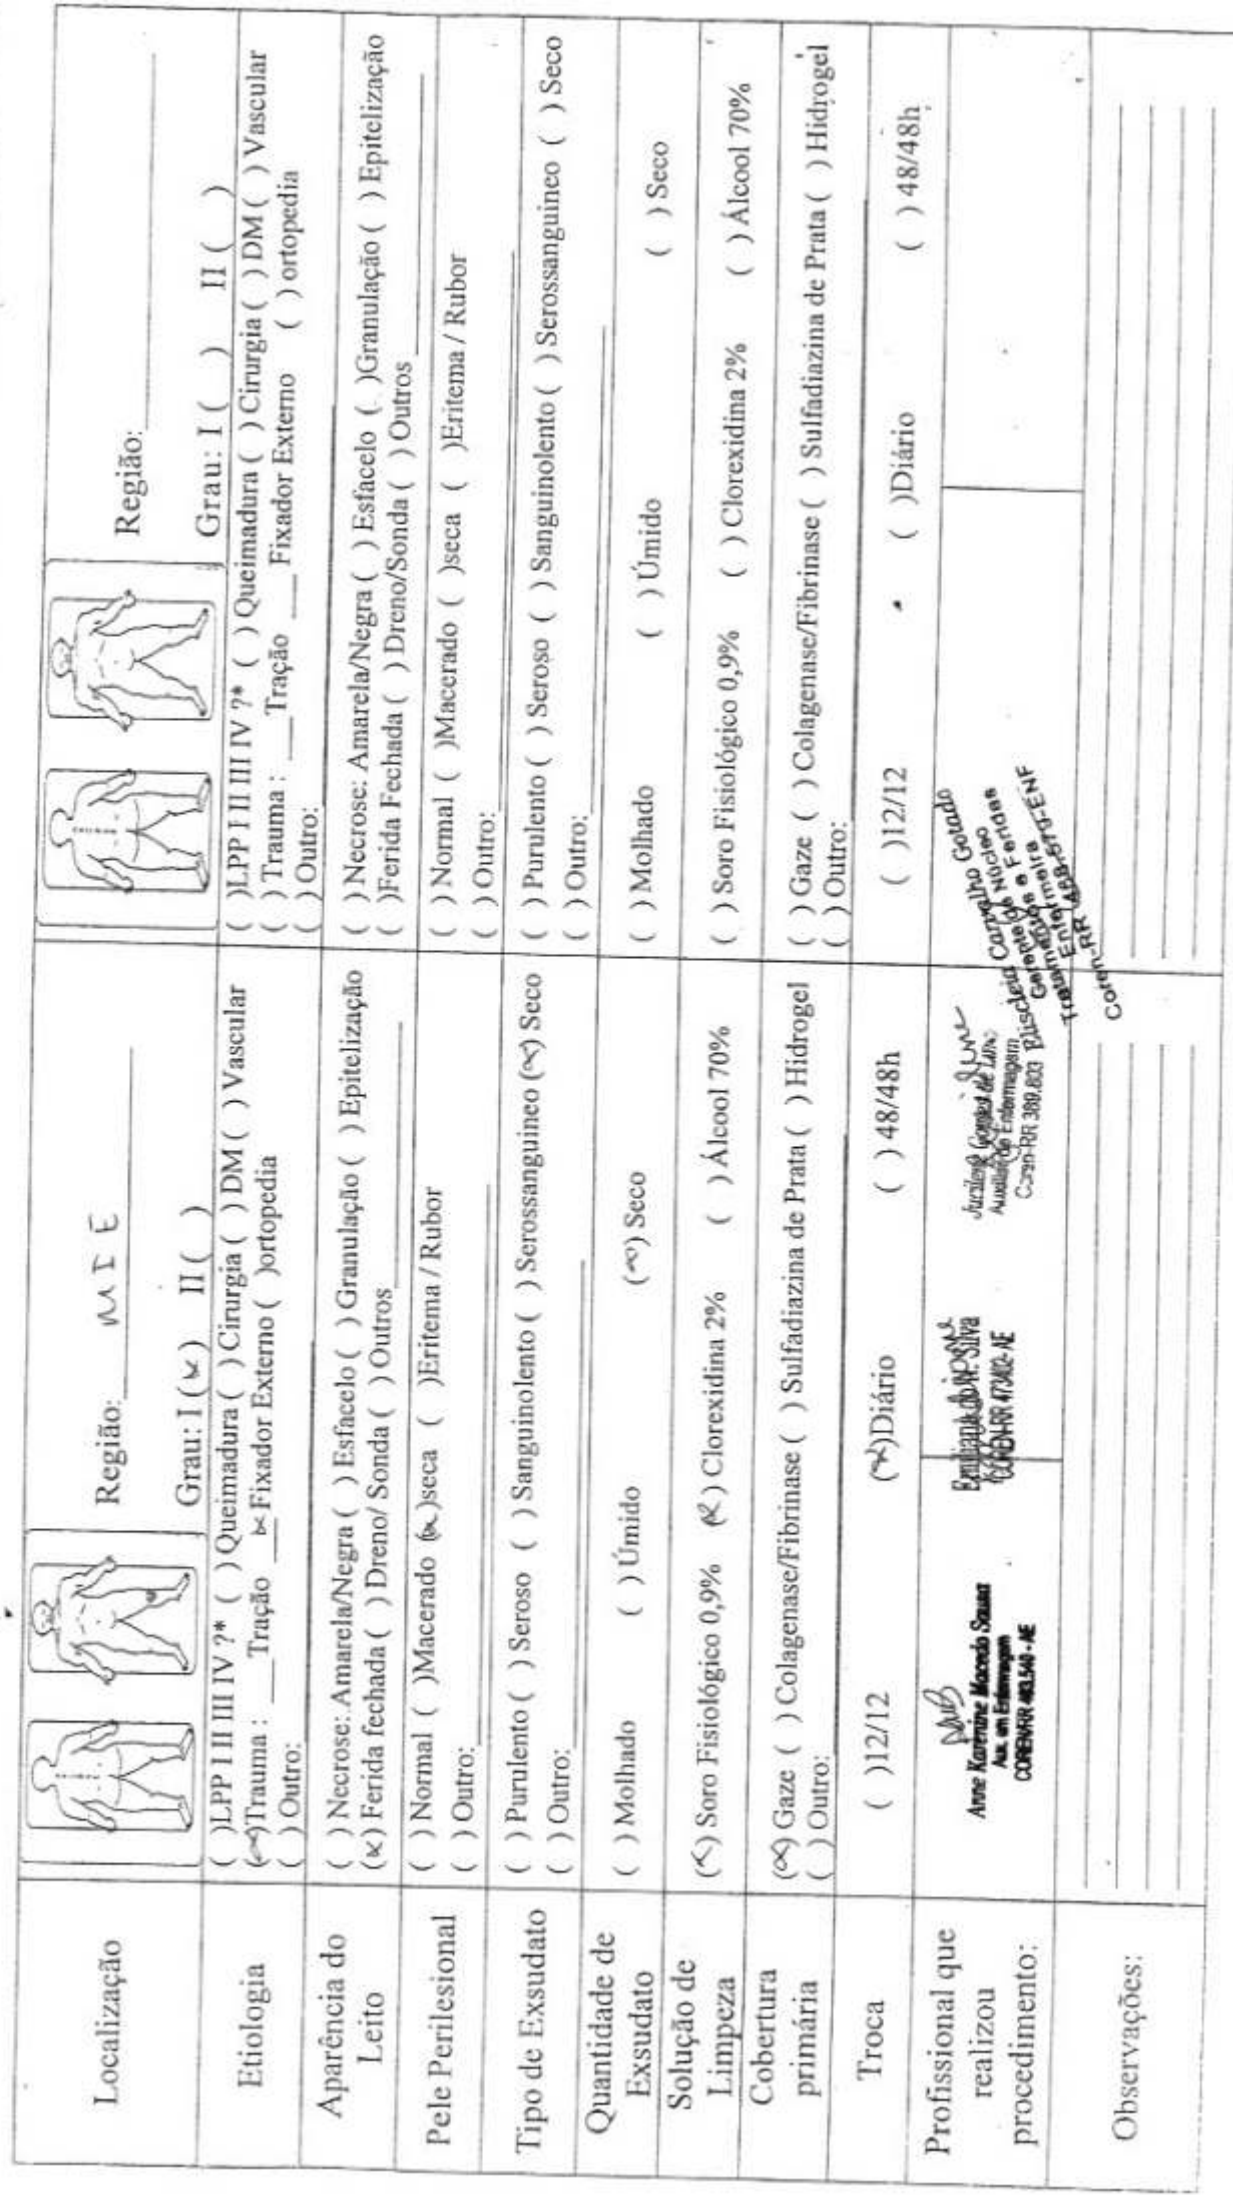 Localização
Região: MIE
Grau: I (x) II ( )
Região:
Grau: I ( ) II ( )
Etiologia
( )LPP I II III IV ?* ( ) Queimadura ( ) Cirurgia ( ) DM ( ) Vascular
(x)Trauma : ___Tração _x_Fixador Externo ( )ortopedia
( ) Outro:
( )LPP I II III IV ?* ( ) Queimadura ( ) Cirurgia ( ) DM ( ) Vascular
( ) Trauma : ___Tração ___Fixador Externo ( ) ortopedia
( ) Outro:
Aparência do
Leito
( ) Necrose: Amarela/Negra ( ) Esfacelo ( ) Granulação ( ) Epitelização
(x) Ferida fechada ( ) Dreno/ Sonda ( ) Outros
( ) Necrose: Amarela/Negra ( ) Esfacelo ( )Granulação ( ) Epitelização
( )Ferida Fechada ( ) Dreno/Sonda ( ) Outros
Pele Perilesional
( ) Normal ( )Macerado (x)seca ( )Eritema / Rubor
( ) Outro:
( ) Normal ( )Macerado ( )seca ( )Eritema / Rubor
( ) Outro:
Tipo de Exsudato
( ) Purulento ( ) Seroso ( ) Sanguinolento ( ) Serossanguineo (x) Seco
( ) Outro:
( ) Purulento ( ) Seroso ( ) Sanguinolento ( ) Serossanguineo ( ) Seco
( ) Outro:
Quantidade de
Exsudato
( ) Molhado ( ) Úmido (x) Seco
( ) Molhado ( ) Úmido ( ) Seco
Solução de
Limpeza
(x) Soro Fisiológico 0,9% (x) Clorexidina 2% ( ) Álcool 70%
( ) Soro Fisiológico 0,9% ( ) Clorexidina 2% ( ) Álcool 70%
Cobertura
primária
(x) Gaze ( ) Colagenase/Fibrinase ( ) Sulfadiazina de Prata ( ) Hidrogel
( ) Outro:
( ) Gaze ( ) Colagenase/Fibrinase ( ) Sulfadiazina de Prata ( ) Hidrogel
( ) Outro:
Troca
( )12/12 (x)Diário ( ) 48/48h
( )12/12 ( )Diário ( ) 48/48h
Profissional que
realizou
procedimento:
Anne Karenine Macedo Sousa
Aux. em Enfermagem
COREN/RR 483.540 - AE
Silva
COREN-RR 473402-AE
Auxiliar de Enfermagem
Coren-RR 389.803
Carvalho Gotado
Gerente do Núcleo
Tratamento e Feridas
Enfermeira
Coren-RR 468.570-ENF
Observações: